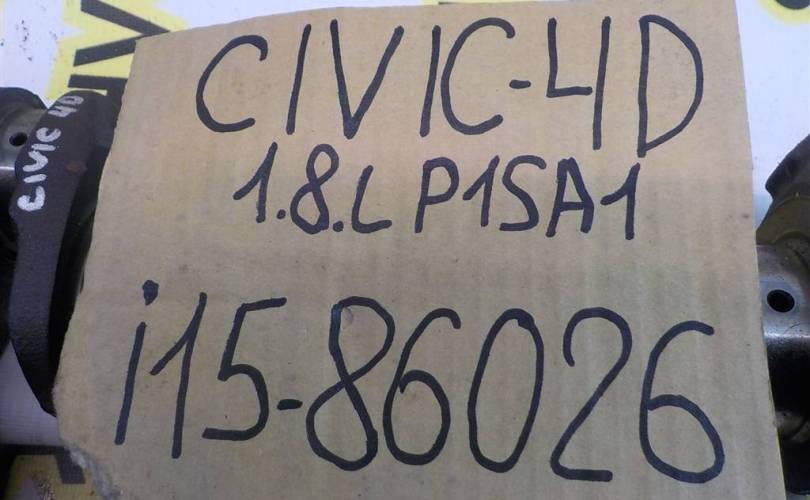 CIVIC-4D
1.8.L P1SA1
i15-86026
CIVIC 4D